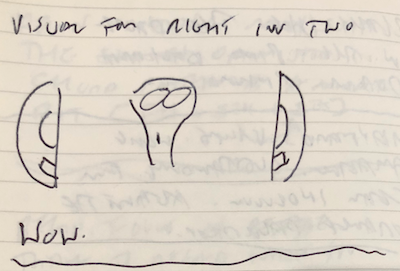 VISUAL FOR RIGHT IN TWO
WOW.